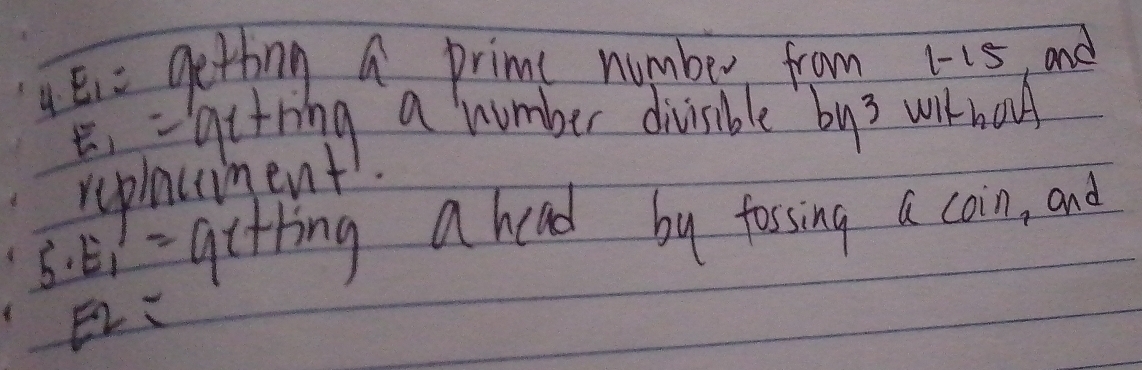 4. E1 = getting a prime number from 1-15, and
E1 = getting a number divisible by 3 without
replacement.
5. E1 = getting a head by tossing a coin, and
E2 =